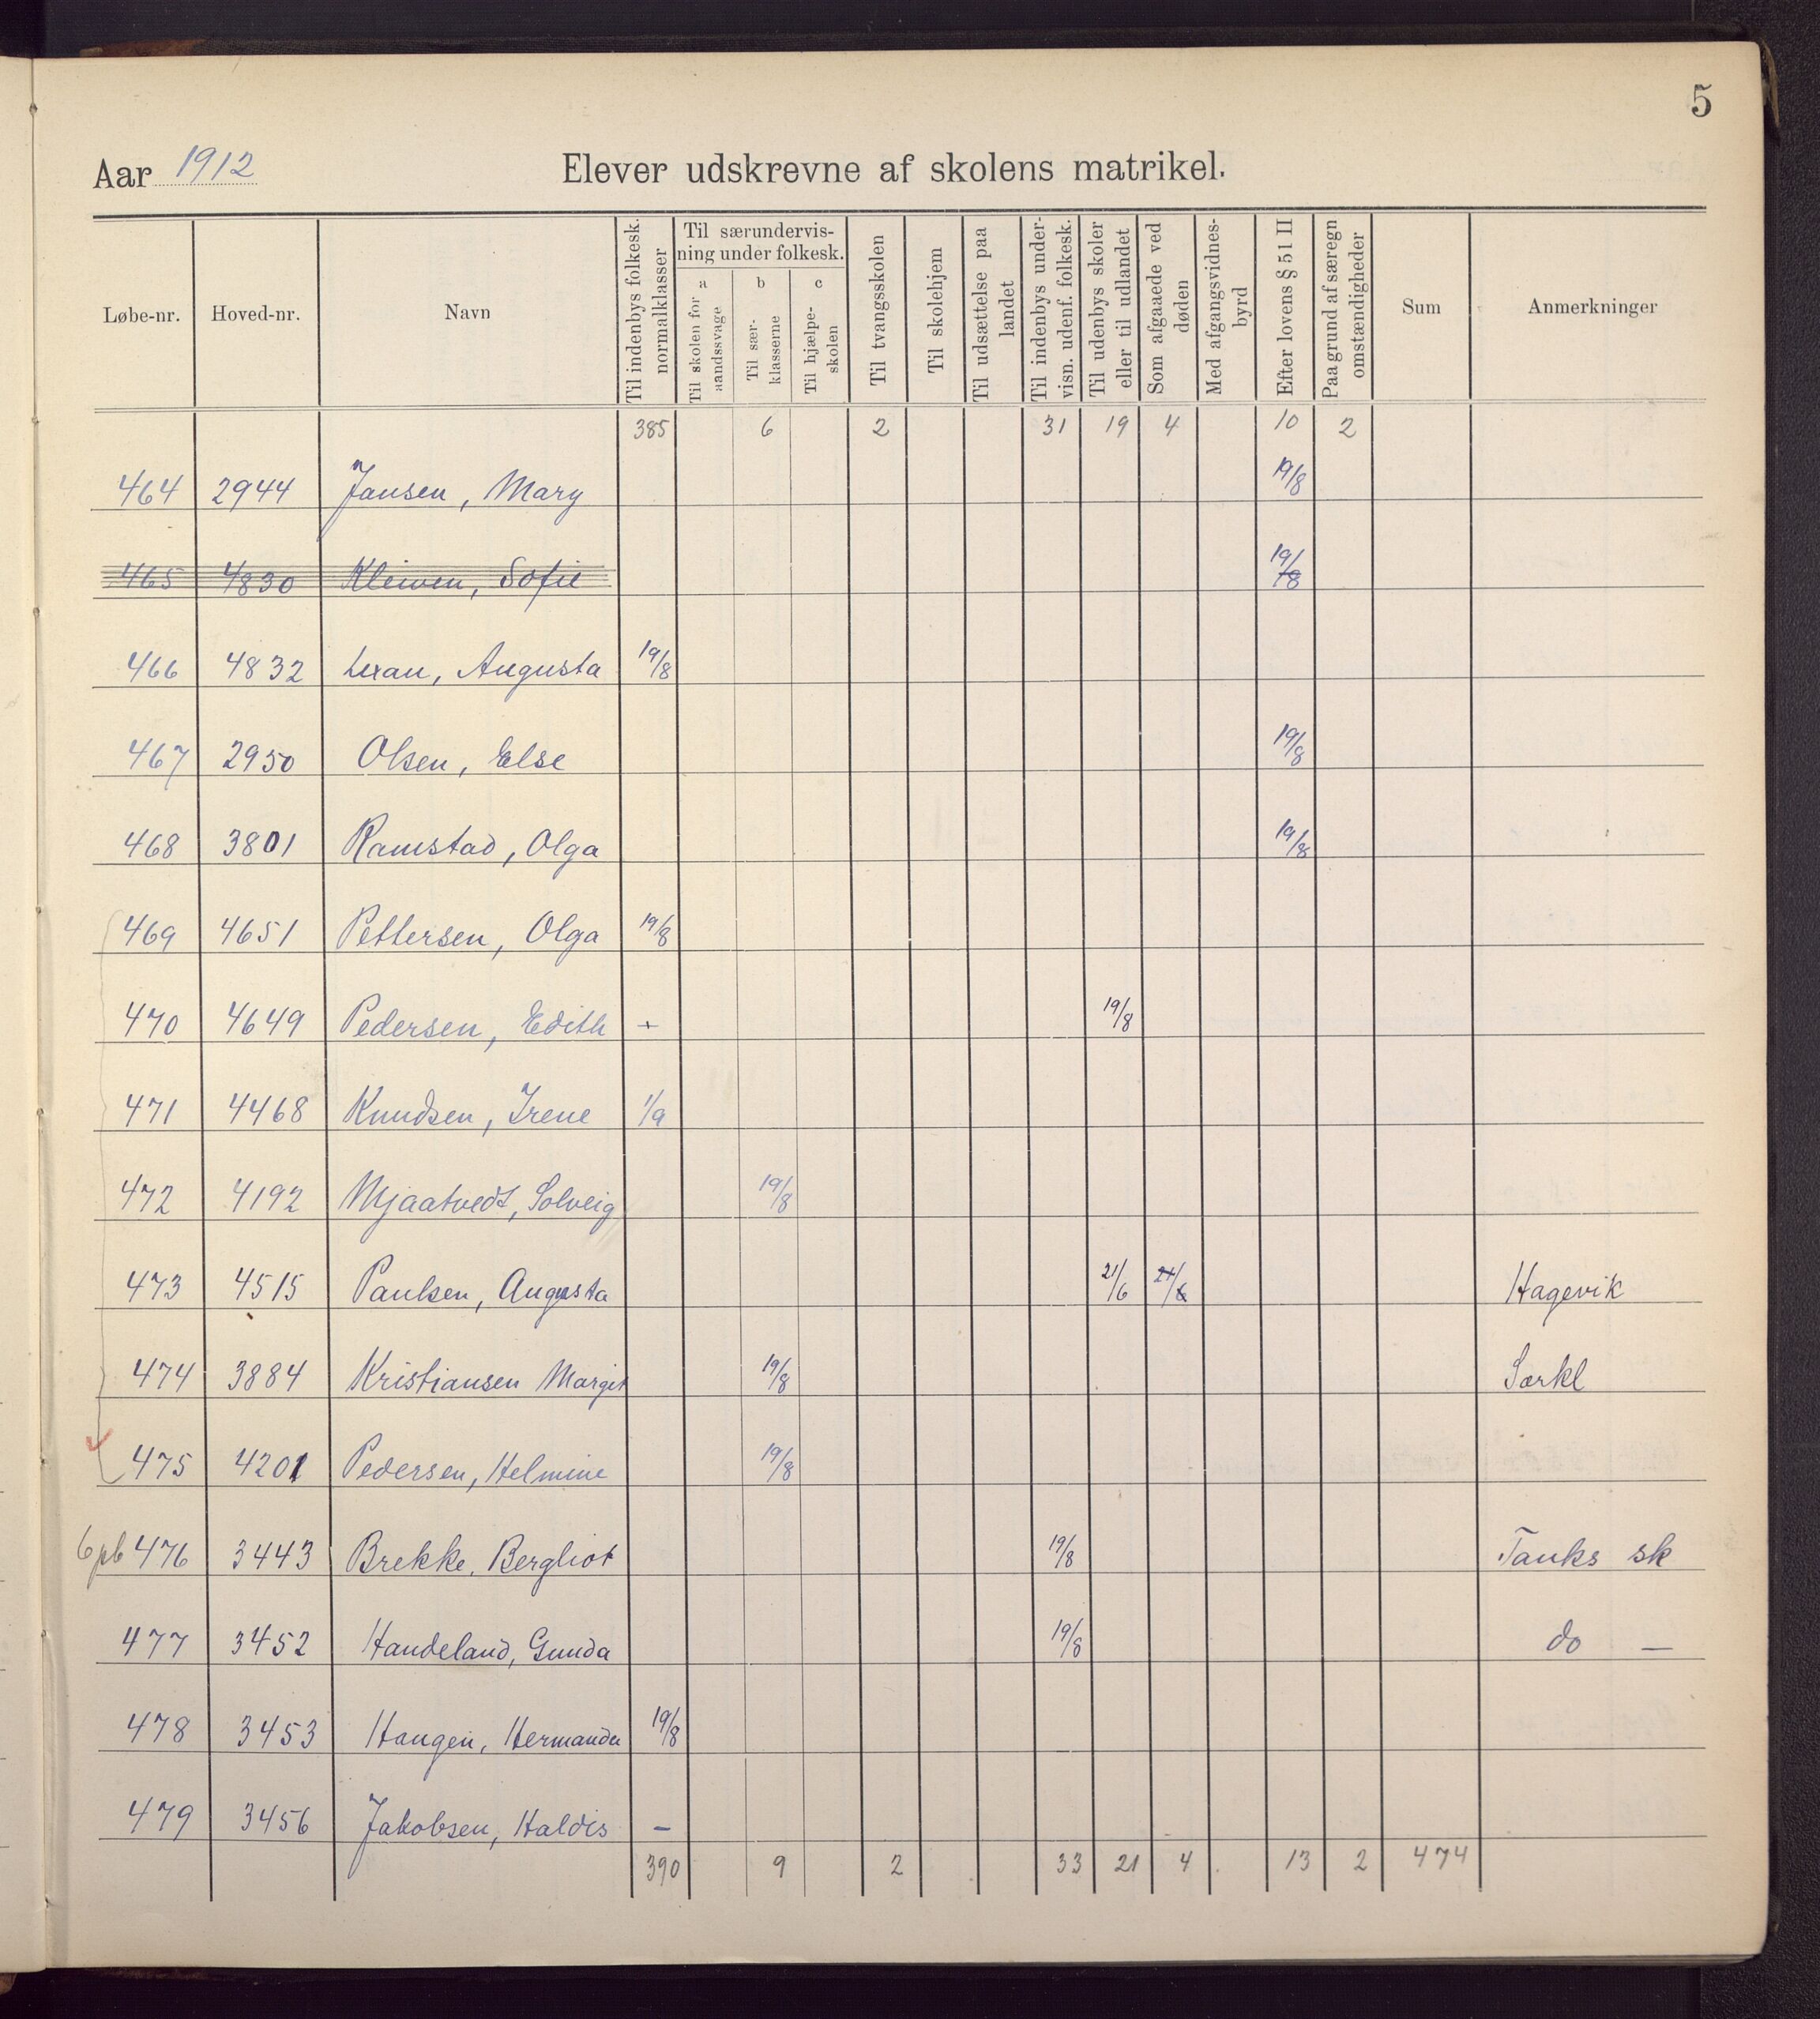 5
Aar 1912 Elever udskrevne af skolens matrikel.
Løbe-nr. Hoved-nr. Navn Til indenbys folkesk. normalklasser Til særundervisning under folkesk. a Til skolen for aandssvage b Til særklasserne c Til hjælpeskolen Til tvangsskolen Til skolehjem Til udsættelse paa landet Til indenbys undervisn. udenf. folkesk. Til udenbys skoler eller til udlandet Som afgaaede ved døden Med afgangsvidnesbyrd Efter lovens § 51 II Paa grund af særegn omstændigheder Sum Anmerkninger
385 6 2 31 19 4 10 2
464 2944 Jansen, Mary 19/8
465 4830 Kleiven, Sofie 19/8
466 4832 Lexau, Augusta 19/8
467 2950 Olsen, Else 19/8
468 3801 Ramstad, Olga 19/8
469 4651 Pettersen, Olga 19/8
470 4649 Pedersen, Edith + 19/8
471 4468 Knudsen, Irene 1/9
472 4192 Mjaatvedt, Solveig 19/8
473 4515 Paulsen, Augusta 21/6 21/6 Hagevik
474 3884 Kristiansen Margit 19/8 Særkl
475 4201 Pedersen, Helmine 19/8
6pb 476 3443 Brekke, Bergliot 19/8 Tanks sk
477 3452 Handeland, Gunda 19/8 do —
478 3453 Haugen, Hermanda 19/8
479 3456 Jakobsen, Haldis —
390 9 2 33 21 4 13 2 474